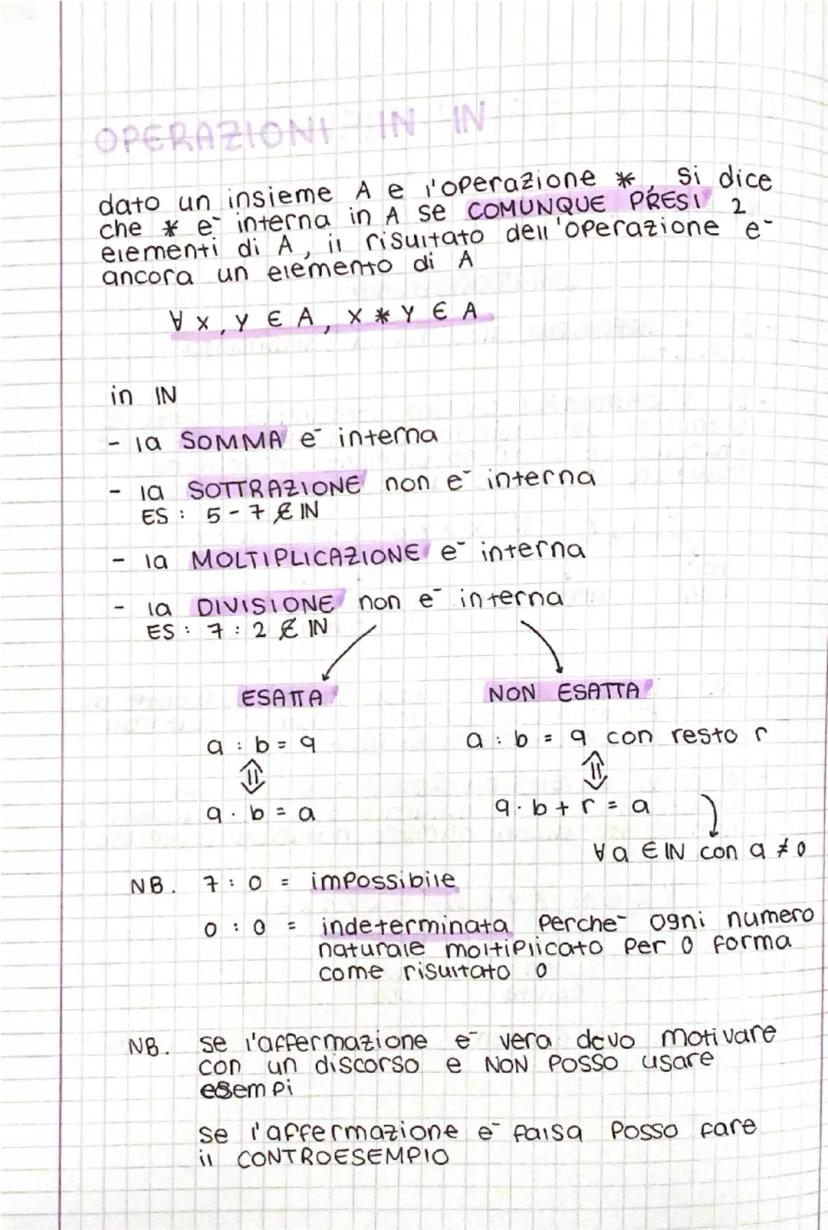 OPERAZIONI IN IN
dato un insieme A e l'operazione *, si dice
che * e- interna in A se COMUNQUE PRESI 2
elementi di A, il risultato dell'operazione e-
ancora un elemento di A
∀ x, y ∈ A, x * y ∈ A
in IN
- la SOMMA e- interna
- la SOTTRAZIONE non e- interna
ES: 5 - 7 ∉ IN
- la MOLTIPLICAZIONE e- interna
- la DIVISIONE non e- interna
ES: 7 : 2 ∉ IN
ESATTA NON ESATTA
a : b = q a : b = q con resto r
⇕ ⇕
q · b = a q · b + r = a
∀ a ∈ IN con a ≠ 0
NB. 7 : 0 = impossibile
0 : 0 = indeterminata perche- ogni numero
naturale moltiplicato per 0 forma
come risultato 0
NB. se l'affermazione e- vera devo motivare
con un discorso e NON posso usare
esempi
se l'affermazione e- falsa posso fare
il CONTROESEMPIO